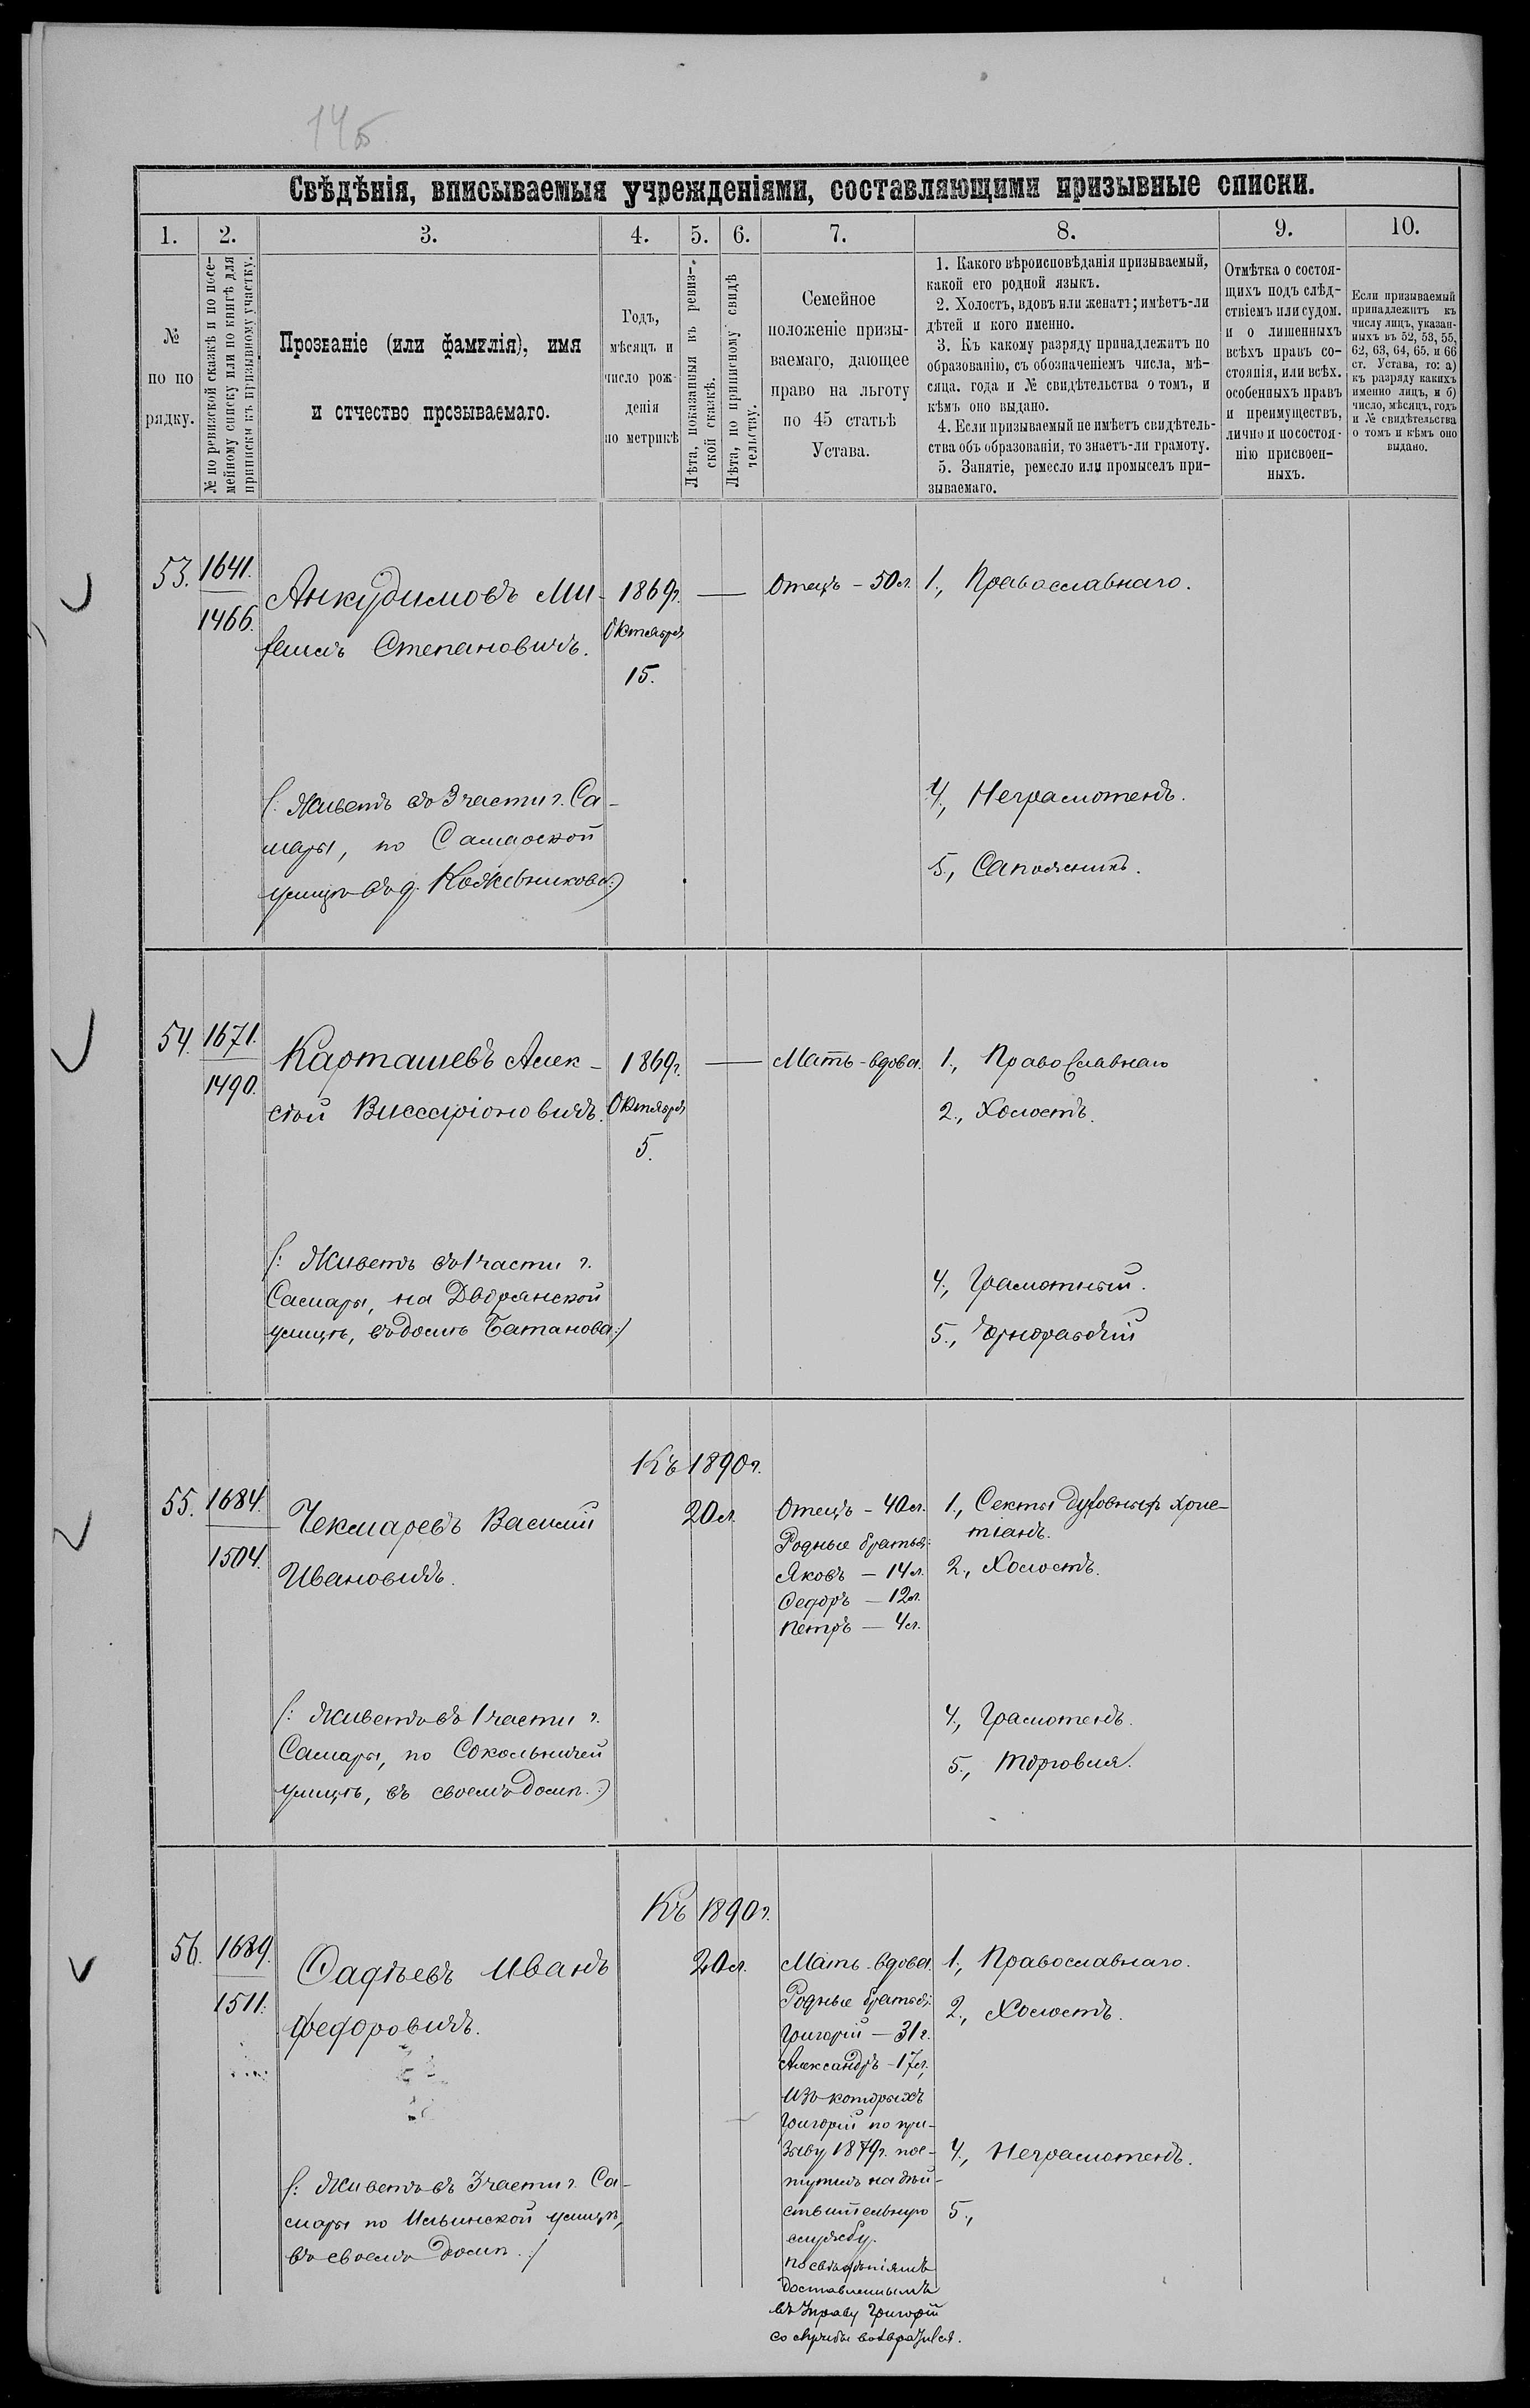 145
Свѣдѣнія, вписываемыя учрежденіями, составляющими призывные списки.
1. 2. 3. 4. 5. 6. 7. 8. 9. 10.
№
по по
рядку.
№ по ревизской сказкѣ и по посе-
мейному списку или по книгѣ для
приписки къ призывному участку.
Прозваніе (или фамилія), имя
и отчество призываемаго.
Годъ,
мѣсяцъ и
число рож-
денія
по метрикѣ
Лѣта, показанныя въ ревиз-
ской сказкѣ.
Лѣта, по приписному свидѣ
тельству.
Семейное
положеніе призы-
ваемаго, дающее
право на льготу
по 45 статьѣ
Устава.
1. Какого вѣроисповѣданія призываемый,
какой его родной языкъ.
2. Холостъ, вдовъ или женатъ; имѣетъ-ли
дѣтей и кого именно.
3. Къ какому разряду принадлежитъ по
образованію, съ обозначеніемъ числа, мѣ-
сяца. года и № свидѣтельства о томъ, и
кѣмъ оно выдано.
4. Если призываемый не имѣетъ свидѣтель-
ства объ образованіи, то знаетъ-ли грамоту.
5. Занятіе, ремесло или промыселъ при-
зываемаго.
Отмѣтка о состоя-
щихъ подъ слѣд-
ствіемъ или судом.
и о лишенныхъ
всѣхъ правъ со-
стоянія, или всѣх.
особенныхъ правъ
и преимуществъ,
лично и по состоя-
нію присвоен-
ныхъ.
Если призываемый
принадлежитъ къ
числу лицъ, указан-
ныхъ въ 52, 53, 55,
62, 63, 64, 65, и 66
ст. Устава, то: а)
къ разряду какихъ
именно лицъ, и б)
число, мѣсяцъ, годъ
и № свидѣтельства
о томъ и кѣмъ оно
выдано.
53. 1641.
1466.
Анкудимовъ Ми-
хаилъ Степановичъ.
1869г.
Октября
15.
Отецъ - 50 л.
1., Православнаго.
/: Живетъ въ 3 части г. Са-
мары, по Самарской
улицѣ въ д. Кожевникова:/
4., Неграмотенъ.
5., Сапожникъ.
54. 1671.
1490.
Карташевъ Алек-
сѣй Виссаріоновичъ.
1869г.
Октября
5.
Мать - вдова.
1., Православнаго
2., Холостъ.
/: Живетъ въ 1 части г.
Самары, на Дворянской
улицѣ, въ домѣ Батанова:/
4., Грамотный.
5., Чернорабочій
55. 1684.
1504.
Чекмаревъ Василій
Ивановичъ.
Къ 1890 г.
20 л.
Отецъ - 40 л.
Родные братья:
Яковъ - 14 л.
Федоръ - 12 л.
Петръ - 4 л.
1., Секты духовныхъ христ-
тіанъ.
2., Холостъ.
/: Живетъ въ 1 части г.
Самары, по Сокольничей
улицѣ, въ своемъ домѣ.:/
4., Грамотенъ.
5., Торговля.
56. 1689.
1511.
Фадѣевъ Иванъ
Федоровичъ.
Къ 1890 г.
20 л.
Мать - вдова.
Родные братья:
Григорій - 31 г.
Александръ - 17 л.,
изъ которыхъ
Григорій по при-
зыву 1879 г. пос-
тупилъ на дѣй-
ствительную
службу.
По свѣдѣніямъ
доставленнымъ
въ Управу Григорій
со службы возвратился.
1., Православнаго.
2., Холостъ.
/: Живетъ въ 3 части г. Са-
мары по Ильинской улицѣ,
въ своемъ домѣ.:/
4., Неграмотенъ.
5.,